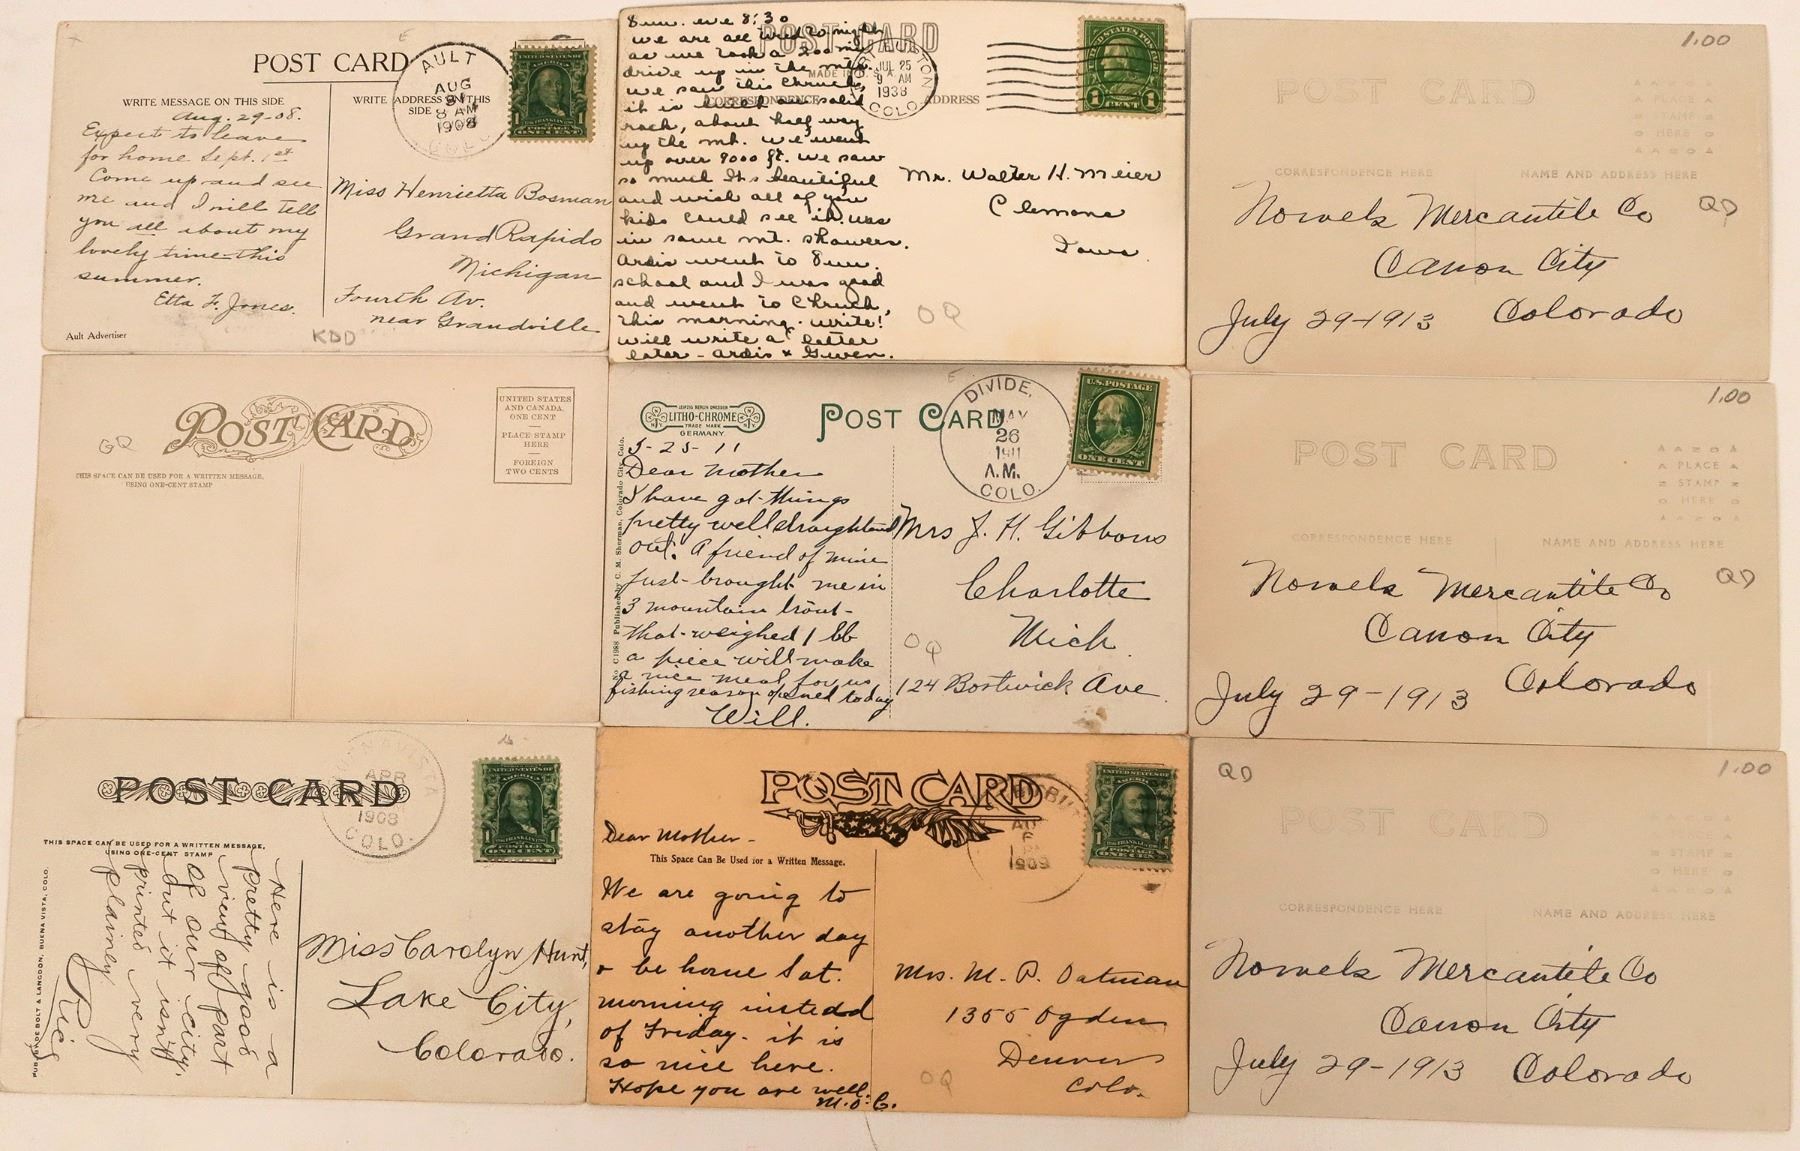 POST CARD
AULT
AUG
31
8 AM
1908
COLO.
UNITED STATES OF AMERICA
POSTAGE
ONE CENT
WRITE MESSAGE ON THIS SIDE
WRITE ADDRESS ON THIS SIDE
Aug. 29-08.
Expect to leave
for home Sept. 1st
Come up and see
me and I will tell
you all about my
lovely time this
summer.
Etta F. Jones.
Miss Henrietta Bosman
Grand Rapids
Michigan
Fourth Av.
near Grandville
Ault Advertiser
KDD
POST CARD
MADE IN U.S.A.
CORRESPONDENCE
ADDRESS
JUL 25
9 AM
1938
COLO.
UNITED STATES POSTAGE
1 CENT 1
Sun. eve 8:30
we are all tired tonight
as we took a 200 mi
drive up in the mts.
we saw this church,
it is built on solid
rock, about half way
up the mt. we went
up over 9000 ft. we saw
so much Its beautiful
and wish all of you
kids could see it. was
in some mt. showers.
Ardis went to Sun.
school and I was good
and went to Church,
this morning. write!
will write a letter
later - Ardis & Gwen.
Mr. Walter H. Meier
Clemons
Iowa
OQ
1.00
POST CARD
PLACE
STAMP
HERE
CORRESPONDENCE HERE
NAME AND ADDRESS HERE
Nowels Mercantile Co
QD
Canon City
July 29-1913 Colorado
GQ
POST CARD
THIS SPACE CAN BE USED FOR A WRITTEN MESSAGE,
USING ONE-CENT STAMP
UNITED STATES
AND CANADA,
ONE CENT
PLACE STAMP
HERE
FOREIGN
TWO CENTS
LEIPZIG BERLIN DRESDEN
LITHO-CHROME
TRADE MARK
GERMANY.
POST CARD
DIVIDE,
MAY
26
1911
A.M.
COLO.
U.S. POSTAGE
ONE CENT
Published by C. M. Sherman, Colorado City, Colo.
5-25-11
Dear Mother
I have got things
pretty well straightend
out. A friend of mine
just brought me in
3 mountain trout
that weighed 1 lb
a piece will make
a nice meal for us
fishing season opened today
Will.
Mrs J. H. Gibbons
Charlotte
Mich.
124 Bostwick Ave
OQ
1.00
POST CARD
PLACE
STAMP
HERE
CORRESPONDENCE HERE
NAME AND ADDRESS HERE
Nowels Mercantile Co
QD
Canon City
July 29-1913 Colorado
POST CARD
BUENA VISTA
APR
1908
COLO.
UNITED STATES OF AMERICA
POSTAGE
ONE CENT
THIS SPACE CAN BE USED FOR A WRITTEN MESSAGE,
USING ONE-CENT STAMP
PUB. BY DE BOLT & LANGDON, BUENA VISTA, COLO.
Here is a
pretty good
view of part
of our city,
but it isn't
printed very
plainly.
Miss Carolyn Hunt,
Lake City,
Colorado.
POST CARD
1909
UNITED STATES OF AMERICA
POSTAGE
ONE CENT
Dear Mother -
This Space Can Be Used for a Written Message.
We are going to
stay another day
& be home Sat.
morning instead
of Friday. it is
so nice here.
Hope you are well.
M.O.C.
Mrs. M. P. Oatman
1355 Ogden
Denver
Colo.
OQ
QD
1.00
POST CARD
STAMP
HERE
CORRESPONDENCE HERE
NAME AND ADDRESS HERE
Nowels Mercantile Co
Canon City
July 29-1913 Colorado